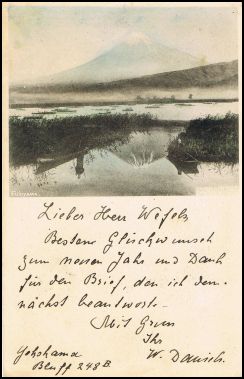 FUJIYAMA.
Lieber Herr Wefels
Bestene Glückwunsch
zum neuen Jahr und Dank
für den Brief, den ich dem-
nächst beantworte.
Mit Gruss
Ihr
W. Danish.
Yokohama
Bluff 248 B